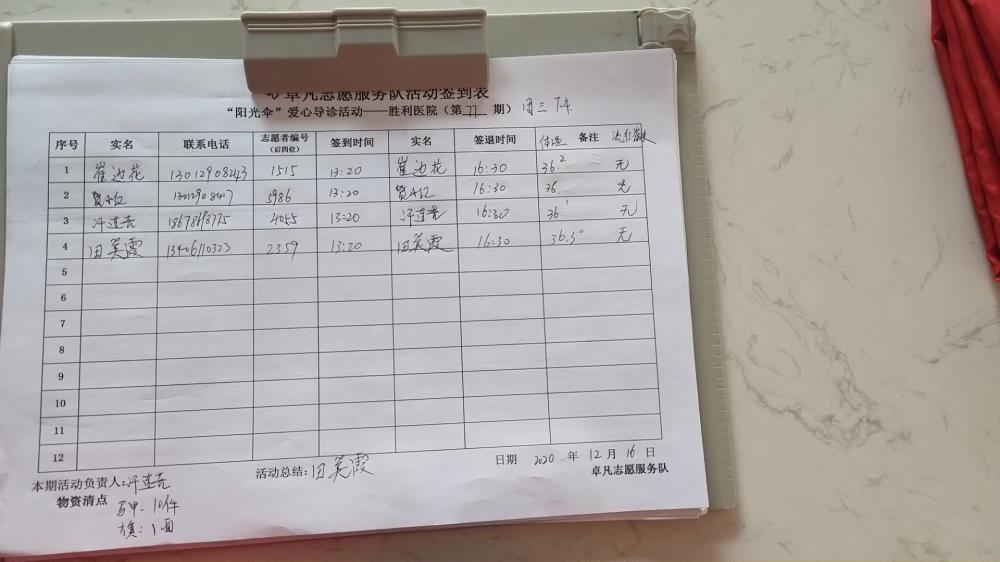 卓凡志愿服务队活动签到表
“阳光伞”爱心导诊活动——胜利医院（第77期）周三下午
序号 实名 联系电话 志愿者编号（后四位） 签到时间 实名 签退时间 体温 备注
1 崔边花 13012908243 1515 13:20 崔边花 16:30 36.2 无
2 5986 13:20 16:30 36 无
3 4055 13:20 16:30 36.1 无
4 田美霞 13406110323 2359 13:20 田美霞 16:30 36.3° 无
5
6
7
8
9
10
11
12
日期 2020 年 12 月 16 日
本期活动负责人： 活动总结：田美霞 卓凡志愿服务队
物资清点
马甲：10件
旗：1面